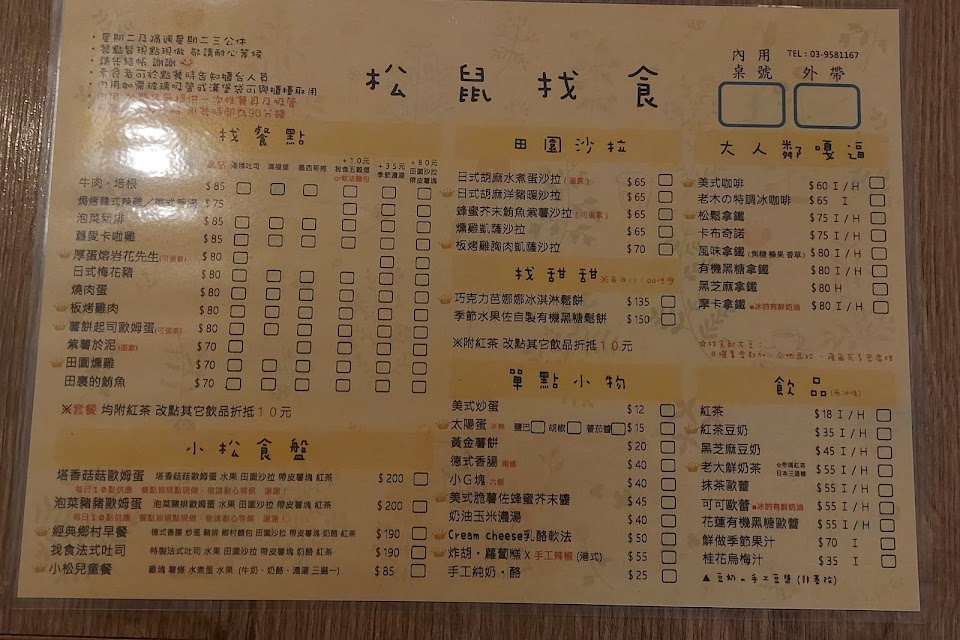 ・星期二及隔週星期二三公休
・餐點皆現點現做 敬請耐心等候
・請先結帳 謝謝
・素食者可於點餐時告知櫃台人員
・內用如需玻璃吸管或漢堡袋可與櫃檯取用
用餐時間為90分鐘
松鼠找食
內用 外帶
桌號
TEL：03-9581167
找餐點
單點 湯種吉司 滿福堡 墨西哥捲 +10元 找食五穀堡 or軟法麵包 +35元 季節濃湯 +80元 田園沙拉 帶皮薯塊
牛肉・培根 $85
$75
泡菜豬排 $85
舊愛卡啦雞 $85
厚蛋熔岩花先生(可蛋素) $80
日式梅花豬 $80
燒肉蛋 $80
板烤雞肉 $80
薯餅起司歐姆蛋(可蛋素) $80
紫薯於泥(蛋素) $70
田園燻雞 $70
田裏的鮪魚 $70
※套餐 均附紅茶 改點其它飲品折抵10元
小松食盤
塔香菇菇歐姆蛋 塔香菇菇歐姆蛋 水果 田園沙拉 帶皮薯塊 紅茶 $200
每日10點供應 餐點皆現點現做，敬請耐心等候 謝謝！
泡菜豬豬歐姆蛋 泡菜豬排歐姆蛋 水果 田園沙拉 帶皮薯塊 紅茶 $200
每日10點供應 餐點皆現點現做，敬請耐心等候 謝謝！
經典鄉村早餐 德式香腸 炒蛋 豬排 鄉村麵包 田園沙拉 帶皮薯塊 奶酪 紅茶 $190
找食法式吐司 特製法式吐司 水果 田園沙拉 帶皮薯塊 奶酪 紅茶 $190
小松兒童餐 雞塊 薯條 水煮蛋 水果 (牛奶、奶酪、濃湯 三選一) $85
田園沙拉
日式胡麻水煮蛋沙拉(蛋素) $65
日式胡麻洋豬暖沙拉 $65
蜂蜜芥末鮪魚紫薯沙拉(可蛋素) $65
燻雞凱薩沙拉 $65
板烤雞胸肉凱薩沙拉 $70
找甜甜
巧克力芭娜娜冰淇淋鬆餅 $135
季節水果佐自製有機黑糖鬆餅 $150
※附紅茶 改點其它飲品折抵10元
單點小物
美式炒蛋 $12
太陽蛋 半熟 鹽巴 胡椒 蕃茄醬 $15
黃金薯餅 $20
德式香腸 兩條 $40
小G塊 六個 $40
美式脆薯佐蜂蜜芥末醬 $45
奶油玉米濃湯 $40
Cream cheese乳酪軟法 $50
炸胡・蘿蔔糕 X 手工辣椒 (港式) $55
手工純奶・酪 $25
大人鄰嘎逼
美式咖啡 $60 I / H
老木の特調冰咖啡 $65 I
松鬆拿鐵 $75 I / H
卡布奇諾 $75 I / H
風味拿鐵 (焦糖 榛果 香草) $80 I / H
有機黑糖拿鐵 $80 I / H
黑芝麻拿鐵 $80 H
摩卡拿鐵 ●冰的有鮮奶油 $80 I / H
飲品
紅茶 $18 I / H
紅茶豆奶 $35 I / H
黑芝麻豆奶 $45 I / H
老大鮮奶茶 ☆帶媽紅茶 日本三溫糖 $55 I / H
抹茶歐蕾 $55 I / H
可可歐蕾 ●冰的有鮮奶油 $55 I / H
花蓮有機黑糖歐蕾 $55 I / H
鮮做季節果汁 $70 I
桂花烏梅汁 $35 I
▲豆奶=手工豆漿(非基改)